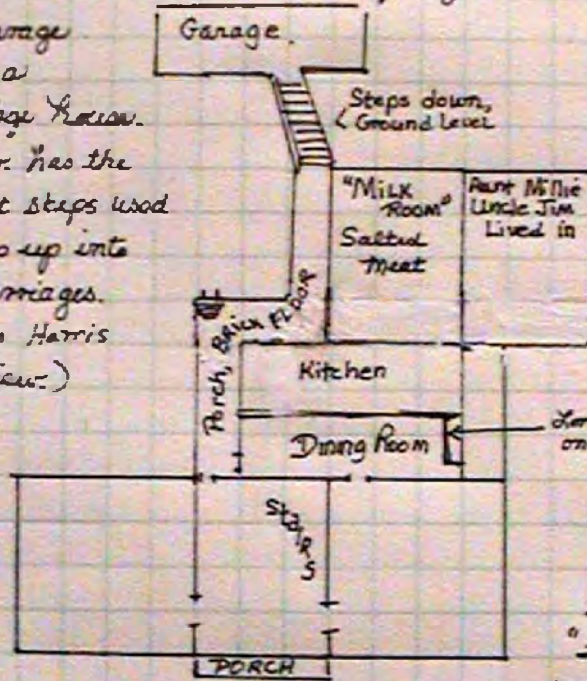 arage
a
age house.
has the
t steps used
up into
rriages.
Harris
Garage
Steps down,
Ground Level
"MILK
ROOM"
Salted
Meat
Aunt Millie
Uncle Jim
Lived in
Porch, Brick FLOOR
Kitchen
Dining Room
on
Stairs
PORCH